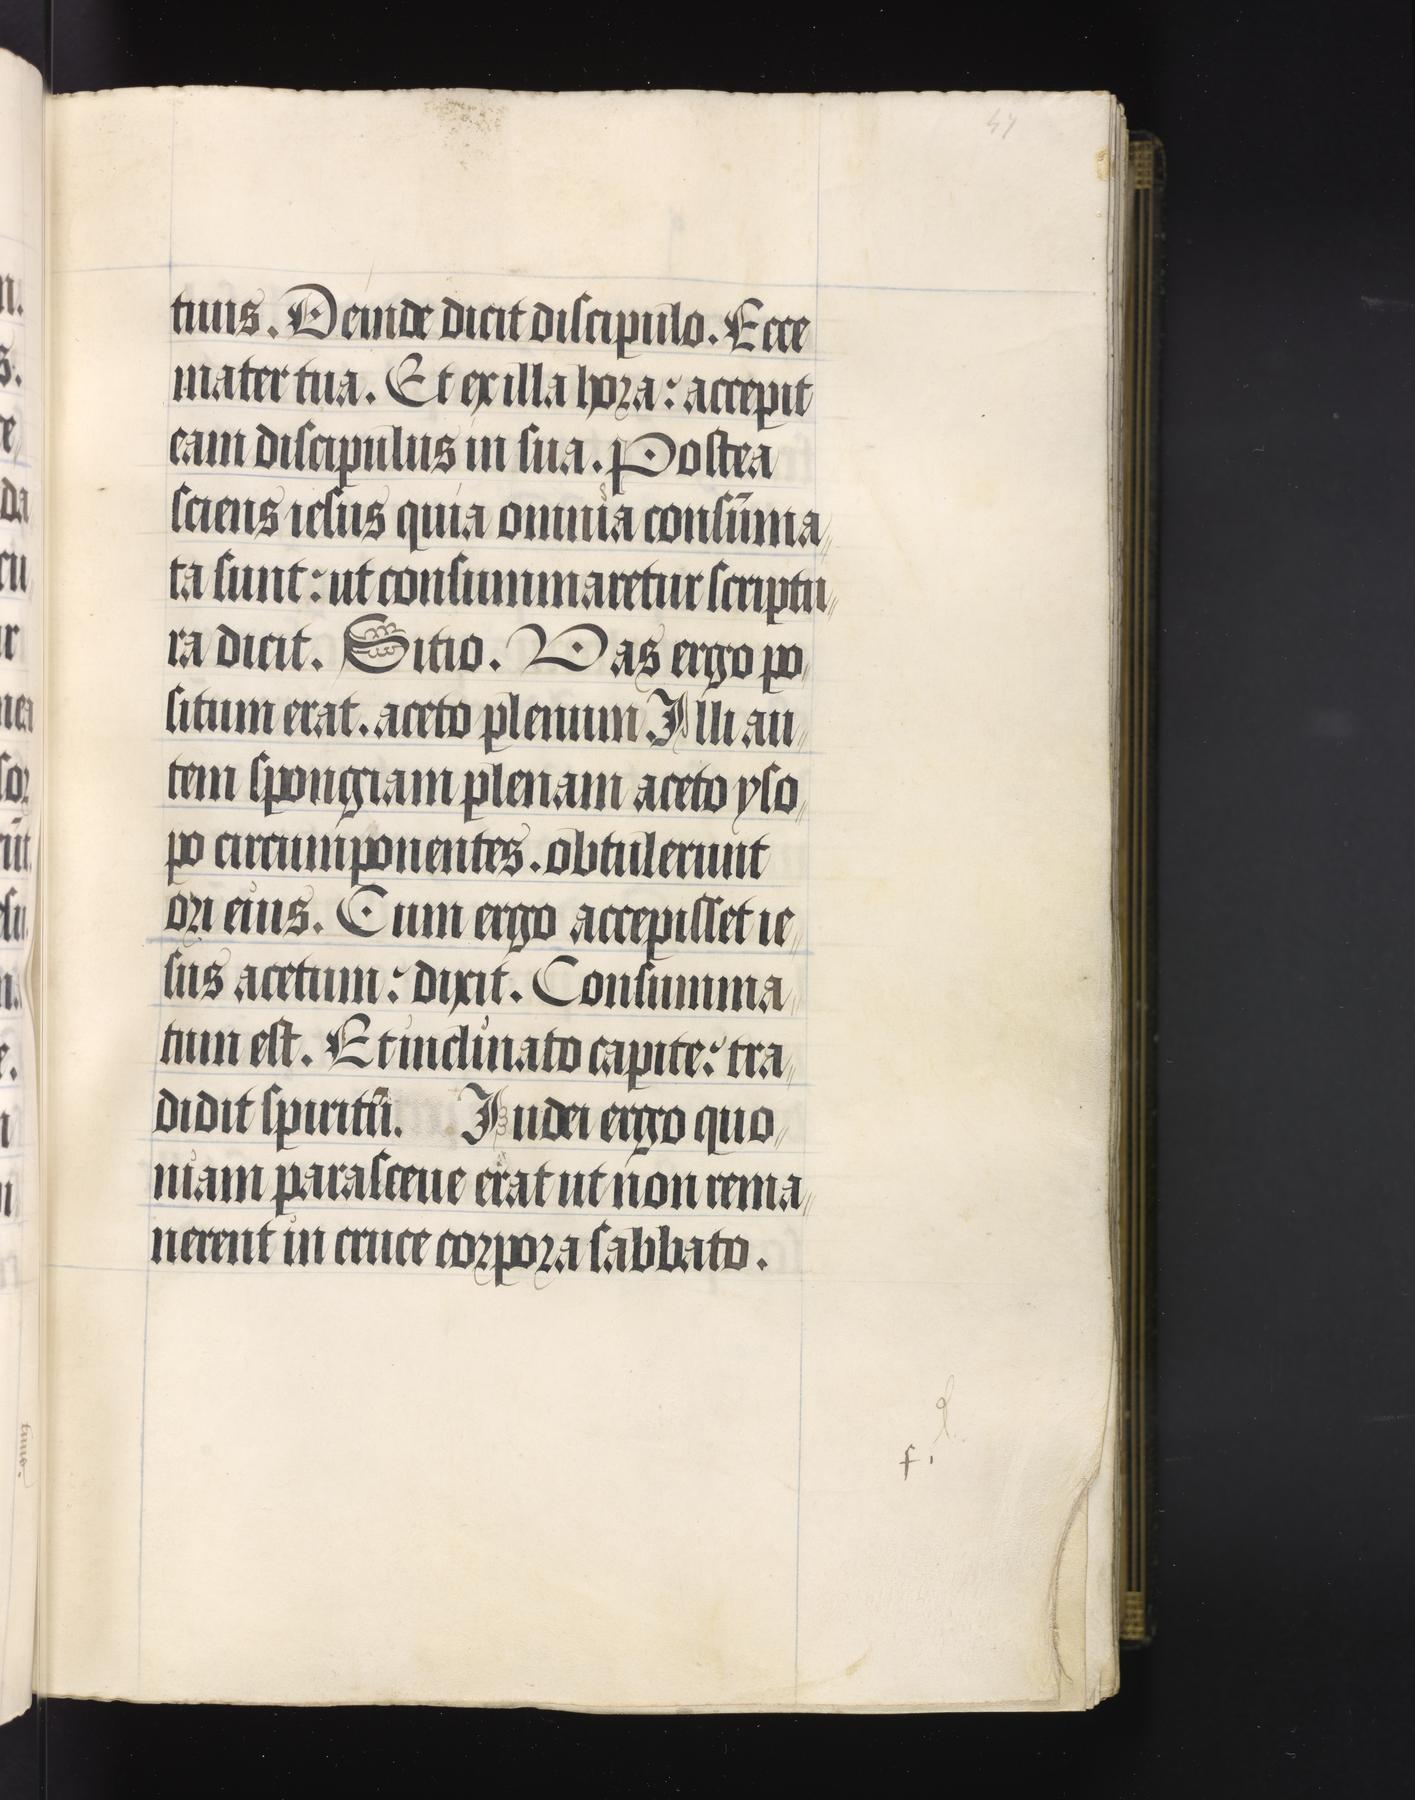 47
tuus. Deinde dicit discipulo. Ecce
mater tua. Et ex illa hora: accepit
eam discipulus in sua. Postea
sciens iesus quia omnia consūma
ta sunt: ut consummaretur scriptu
ra dicit. Sitio. Vas ergo po
situm erat. aceto plenum Illi au
tem spongiam plenam aceto yso
po circumponentes. obtulerunt
ori eius. Cum ergo accepisset ie
sus acetum: dixit. Consumma
tum est. Et inclinato capite: tra
didit spiritū. Iudei ergo quo
niam parasceue erat ut non rema
nerent in cruce corpora sabbato.
f.